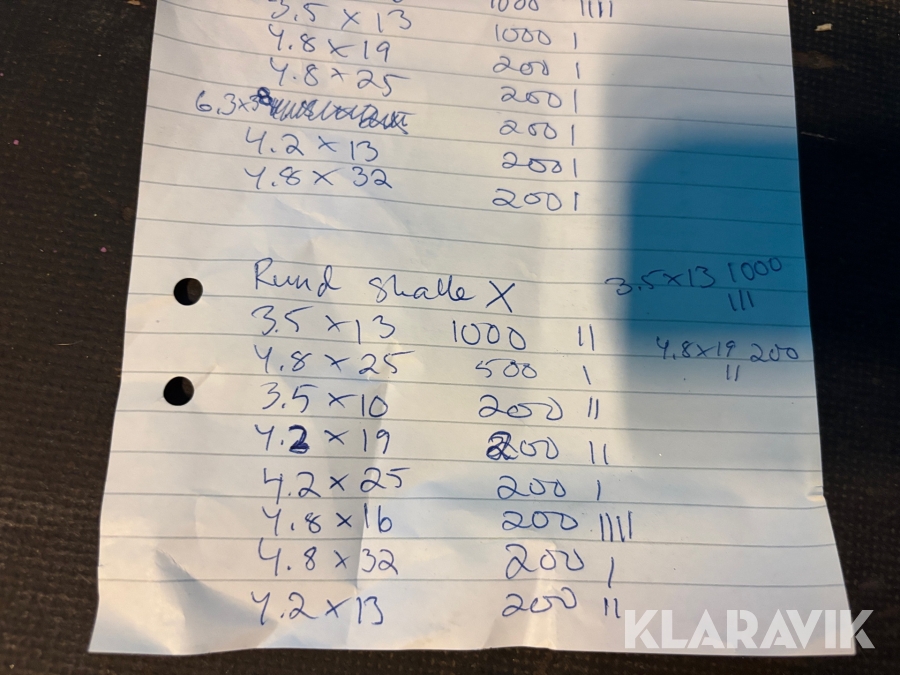 1000 IIII
3.5 x 13 1000 I
4.8 x 19 200 I
4.8 x 25 200 I
6.3 x 38 200 I
4.2 x 13 200 I
4.8 x 32 200 I
Rund skalle X
3.5 x 13 1000 II
4.8 x 25 500 I
3.5 x 10 200 II
4.2 x 19 200 II
4.2 x 25 200 I
4.8 x 16 200 IIII
4.8 x 32 200 I
4.2 x 13 200 II
3.5 x 13 1000
III
4.8 x 19 200
II
KLARAVIK